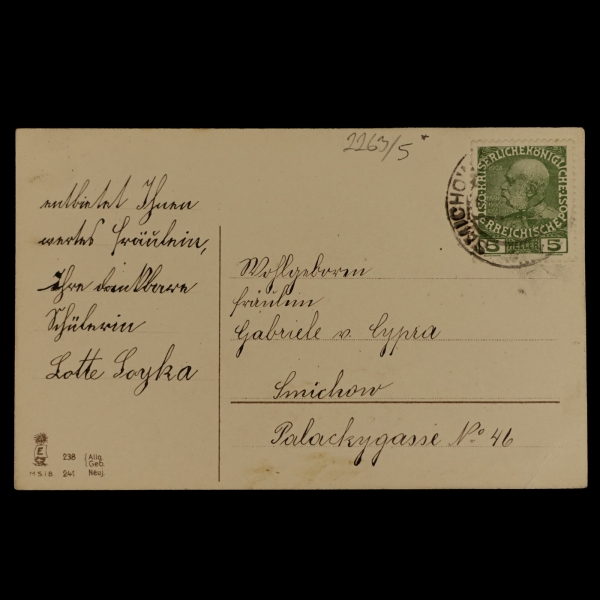 2263/5
SMICHOW
KAISERLICHEKÖNIGLICHE
ÖSTERREICHISCHE POST
5 HELLER 5
entbietet Ihnen
wertes Fräulein,
Ihre dankbare
Schülerin
Lotte Loyka
Wohlgeboren
Fräulein
Gabriele v. Cypra
Smichow
Palackygasse No 46
E
238 Allg.
Geb.
M.S.i.B. 241 Neuj.